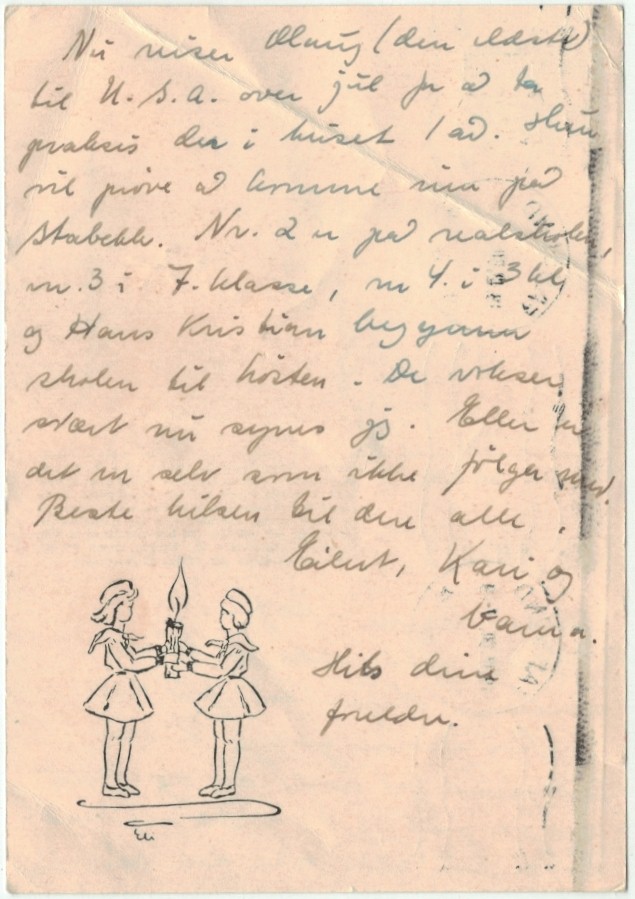 Nu reiser Olaug (den eldste)
til U.S.A. over jul for å ta
praksis der i huset 1 år. Hun
vil prøve å komme inn på
Stabekk. Nr. 2 er på realskolen,
nr. 3 i 7. klasse, nr 4. i 3 kl
og Hans Kristian begynner
skolen til hösten. De vokser
svært nu synes jeg. Eller er
det en selv som ikke fölger med.
Beste hilsen til dere alle.
Eilert, Kari og
barna.
Hils dine
foreldre.